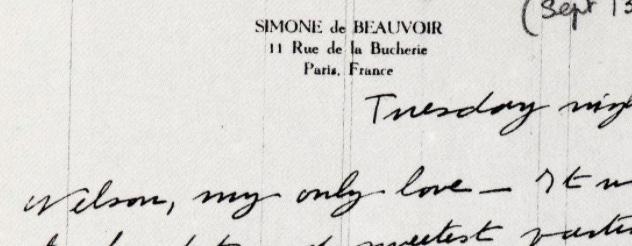 (Sept 13
SIMONE de BEAUVOIR
11 Rue de la Bucherie
Paris, France
Tuesday nigh
Nelson, my only love — It w
sweetest